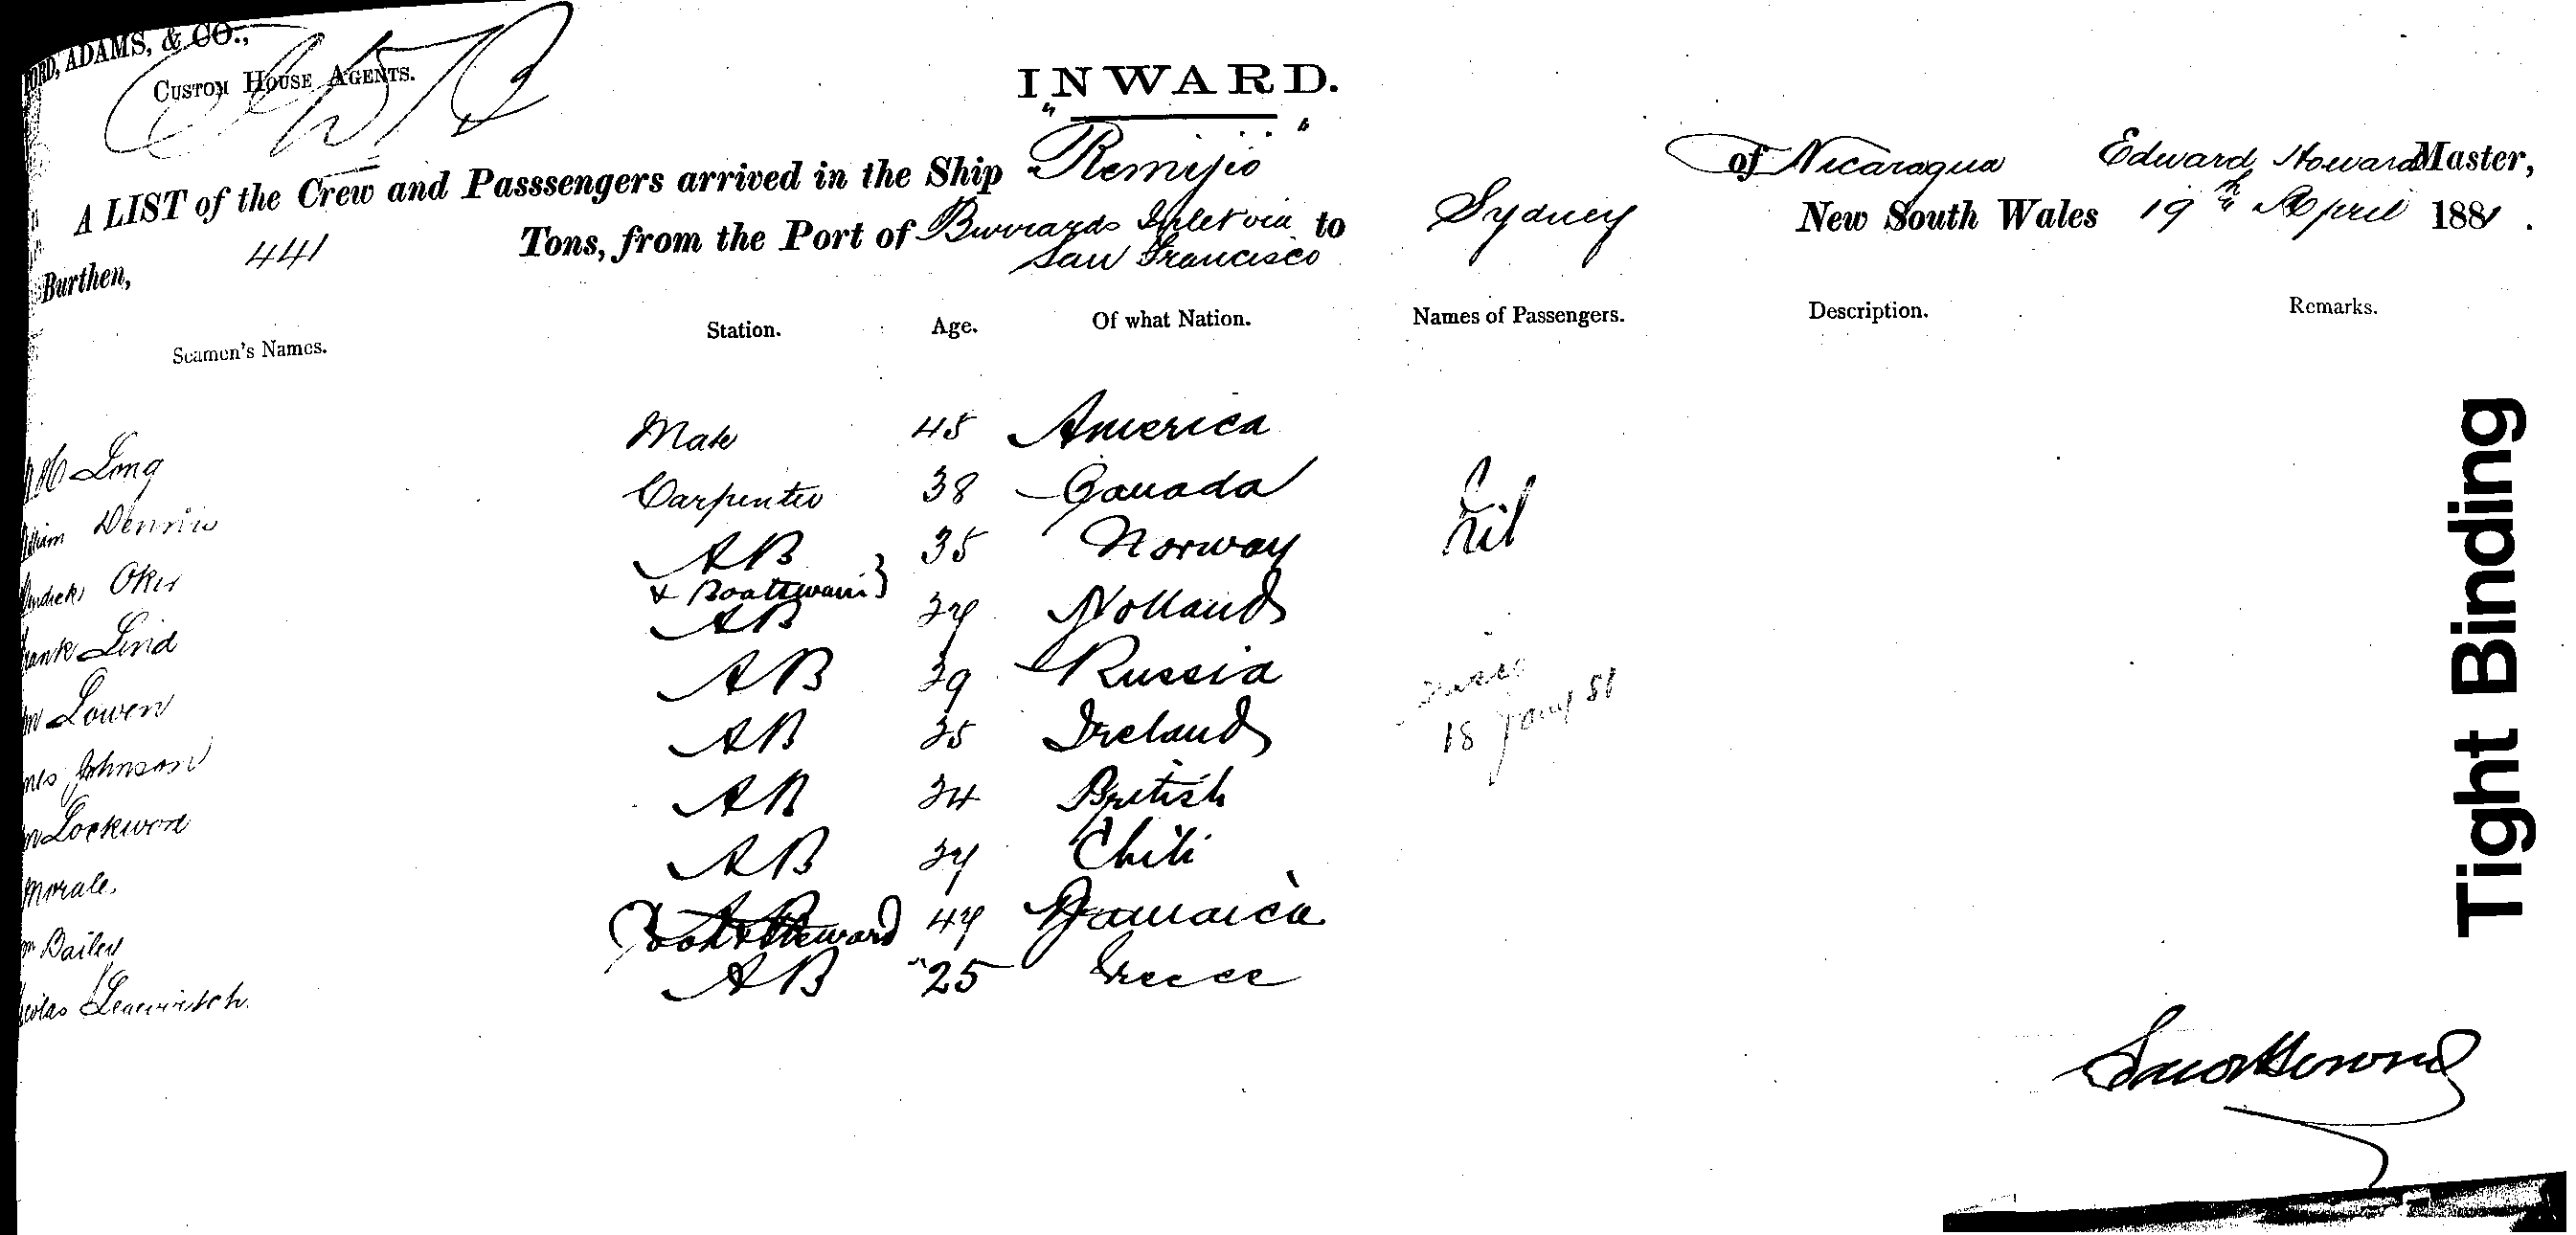 ADAMS, & CO.,
CUSTOM HOUSE AGENTS.
INWARD.
A LIST of the Crew and Passsengers arrived in the Ship "Remijio" of Nicaragua Edward Howard Master,
Burthen, 441 Tons, from the Port of Burrards Inlet via San Francisco to Sydney New South Wales 19th April 1881.
Seamen's Names. Station. Age. Of what Nation. Names of Passengers. Description. Remarks.
Long Mate 45 America
Carpenter 38 Canada nil
AB & Boatswain 35 Norway
Lind AB Holland
Lowen AB 39 Russia
Johnson AB 35 Ireland
18 Jany 81
Lockwood AB 24 British
Morale. AB Chili
Bailey Cook & Steward Jamaica
AB 25 Greece
Tight Binding